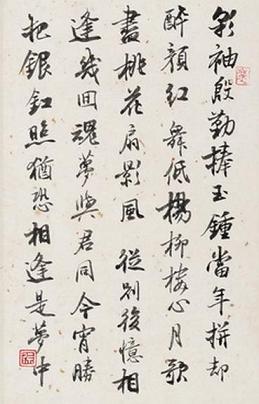 彩袖殷勤捧玉鍾當年拼却
醉顏紅舞低楊柳樓心月歌
盡桃花扇影風從別後憶相
逢幾回魂夢與君同今宵賸
把銀釭照猶恐相逢是夢中